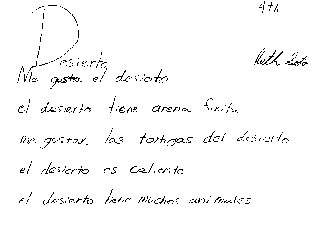 4th
Desierto
Me gusta el desierto
el desierto tiene arena finita
me gustan las tortugas del desierto
el desierto es caliente
el desierto tiene muchos animales